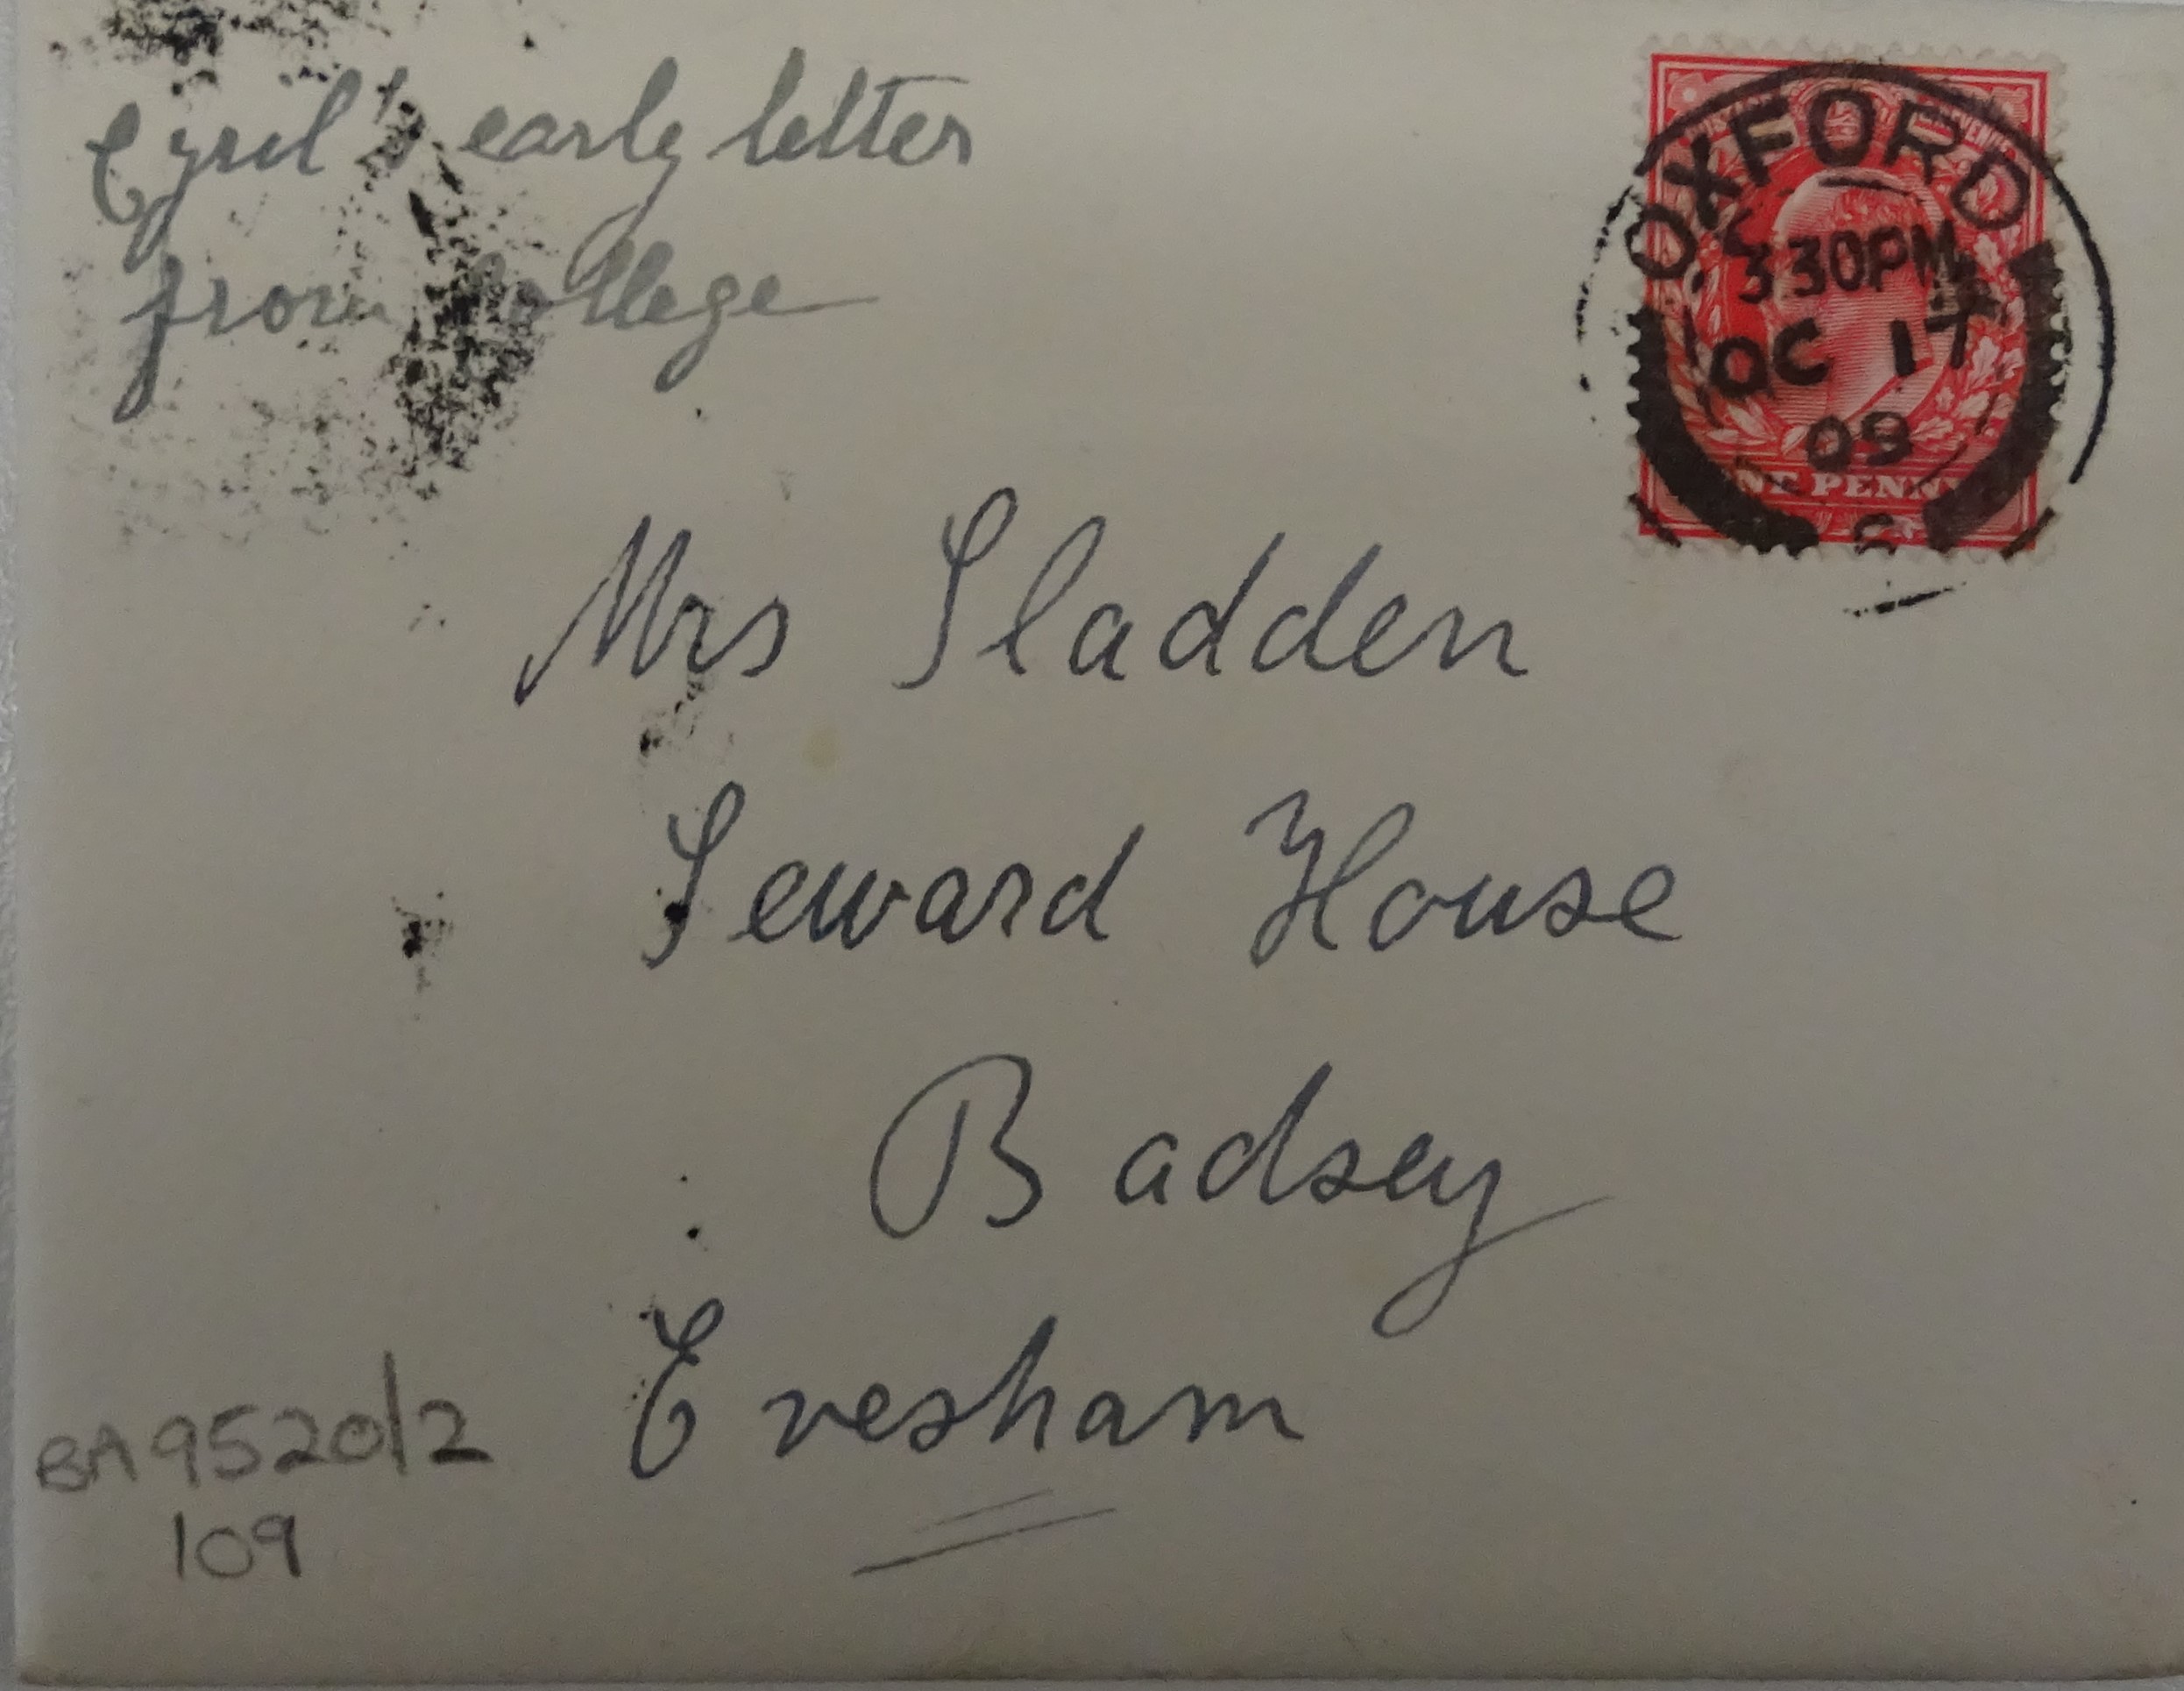 Cyril's early letter
from College
OXFORD
3 30PM
OC 17
09
ONE PENNY
Mrs Sladden
Seward House
Badsey
Evesham
BA9520/2
109